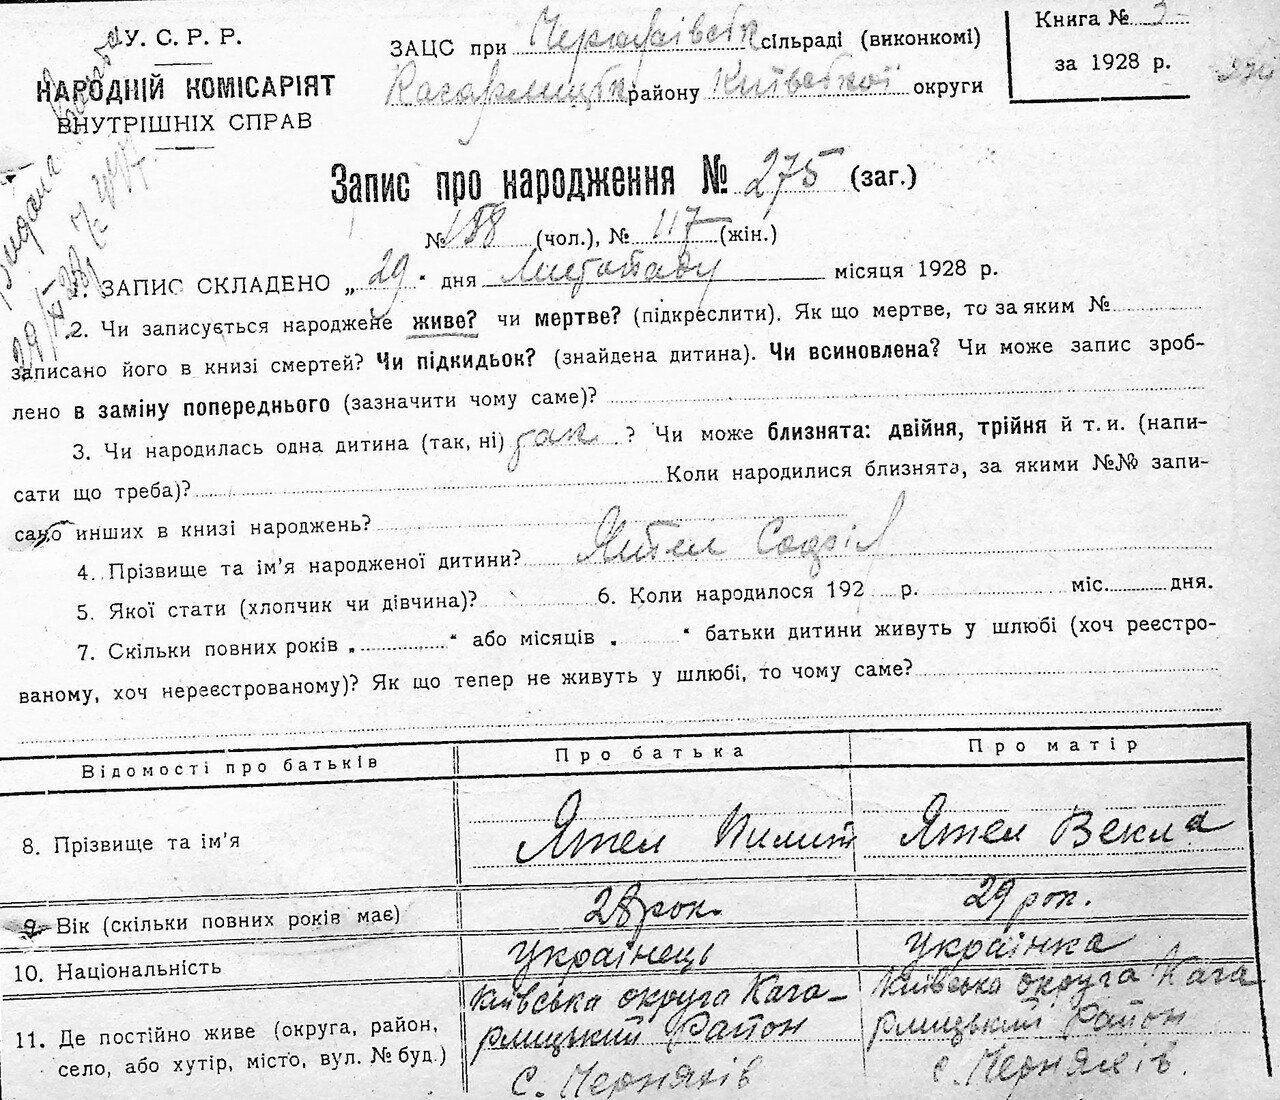 У. С. Р. Р.
НАРОДНІЙ КОМІСАРІЯТ
ВНУТРІШНІХ СПРАВ
ЗАЦС при Черняхівськ сільраді (виконкомі)
Кагарлицьк району Київської округи
Книга №
за 1928 р.
Запис про народження № 275 (заг.)
№ 158 (чол.), № 117 (жін.)
1. ЗАПИС СКЛАДЕНО „ 29 “ дня Листопаду місяця 1928 р.
2. Чи записується народжене живе? чи мертве? (підкреслити). Як що мертве, то за яким №
записано його в книзі смертей? Чи підкидьок? (знайдена дитина). Чи всиновлена? Чи може запис зроб-
лено в заміну попереднього (зазначити чому саме)?
3. Чи народилась одна дитина (так, ні) так ? Чи може близнята: двійня, трійня й т. и. (напи-
сати що треба)? Коли народилися близнята, за якими №№ запи-
сано инших в книзі народжень?
4. Прізвище та ім’я народженої дитини? Ятел
5. Якої стати (хлопчик чи дівчина)? 6. Коли народилося 192 р. міс. дня.
7. Скільки повних років „ “ або місяців „ “ батьки дитини живуть у шлюбі (хоч реєстро-
ваному, хоч нереєстрованому)? Як що тепер не живуть у шлюбі, то чому саме?
Відомості про батьків Про батька Про матір
8. Прізвище та ім’я Ятел Пилип Ятел Векла
9. Вік (скільки повних років має) 28 рок. 29 рок.
10. Національність українець українка
11. Де постійно живе (округа, район,
село, або хутір, місто, вул. № буд.)
Київська округа Кага-
рлицький Район
с. Черняхів
Київська округа Кага
рлицький Район
с. Черняхів.